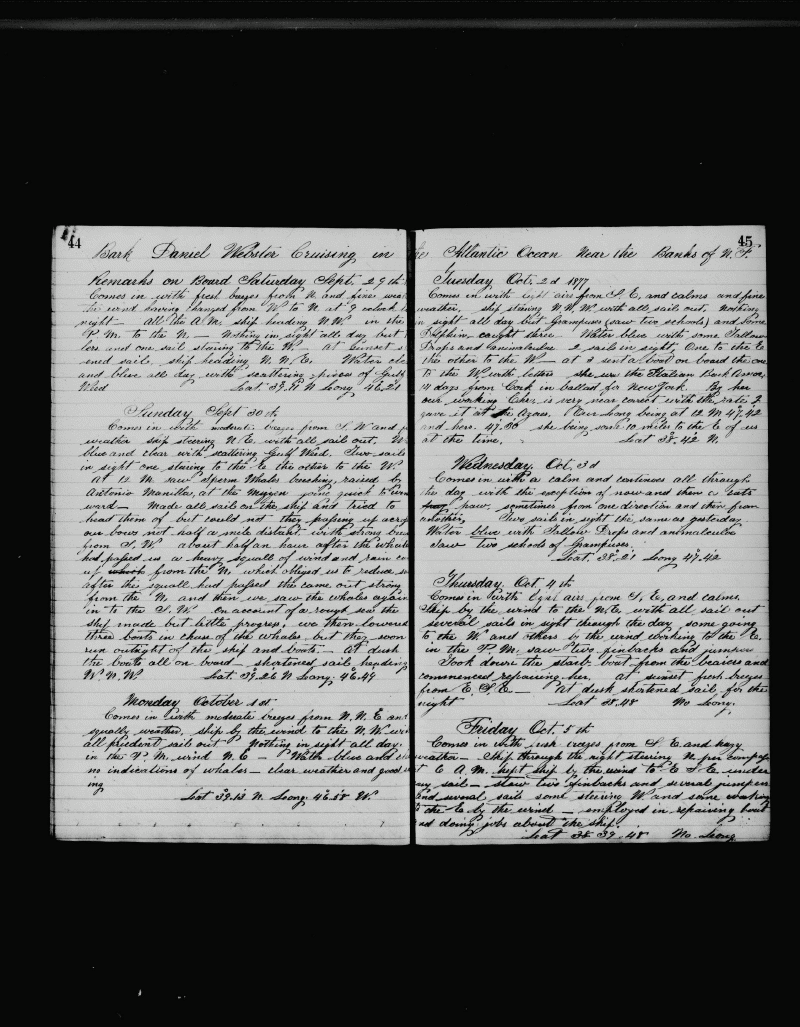 44
Bark Daniel Webster Cruising in
Remarks on Board Saturday Sept. 29th
Comes in with fresh breezes from N. and fine
the wind having changed from W. to N. at 9 oclock
night — All the A.M. ship heading N.W. in the
P.M. to the N. — Nothing in sight all day but
and one sail steering to the W. at sunset
ened sail, ship heading N.N.E. Water
and blue all day with scattering pieces of Gulf
Weed Lat 39.11 N Long 46.21
Sunday Sept 30th
Comes in with moderate breezes from S.W. and
weather ship steering N.E. with all sail out.
blue and clear with scattering Gulf Weed. Two sails
in sight one steering to the E. the other to the W.
At 12 M. saw Sperm Whales breeching, raised by
Antonio Manilla, at the Mizzen going quick to
ward — Made all sail on the ship and tried to
head them of but could not they passing up
our bows not half a mile distant with strong
from S.W. about half an hour after the whales
had passed us a heavy squall of wind and rain
up from the N. which obliged us to reduce
after the squall had passed the came out strong
from the N. and then we saw the whales again
in to the S.W. on account of a rough sea the
ship made but little progress, we then lowered
three boats in chase of the whales, but they soon
run outsight of the ship and boats. — At dusk
the boats all on board — shortened sail heading
W.N.W. Lat 39.26 N Long. 46.49
Monday October 1st
Comes in with moderate breezes from N.N.E. and
squally weather, ship by the wind to the N.W.
all prudent sail out Nothing in sight all day.
in the P.M. wind N.E. — Water blue and
no indications of whales — clear weather and good
ing
Lat 39.13 N. Long. 46.58 W.
45
the Atlantic Ocean Near the Banks of N.F.
Tuesday Oct. 2d 1877
Comes in with light airs from S.E. and calms and fine
weather, ship steering N.N.W. with all sail out, Nothing
in sight all day but Grampuses (saw two schools) and some
Dolphin caught three. Water blue with some Tallow
Drops and animalculae 2 sails in sight, One to the E.
the other to the W — at 3 sent a boat on board the one
to the W. with letters she was the Italian Bark
14 days from Cork in ballast for New York. By her
our working Chro. is very near correct with the rate I
gave it at the Azores. Our Long being at 12 M 47.42
and hers. 47.30 she being some 10 miles to the E of us
at the time. Lat 38.42 N.
Wednesday. Oct. 3d
Comes in with a calm and continues all through
the day with the exception of now and then a cats
paw, sometimes from one direction and then from
another, Two sails in sight the same as yesterday
Water blue with Tallow Drops and animalculae
Saw two schools of Grampuses.
Lat. 38.21 Long 47.42
Thursday Oct. 4th
Comes in with light airs from S.E. and calms.
Ship by the wind to the N.E. with all sail out
several sails in sight through the day some going
to the W. and others by the wind working to the E.
in the P.M. saw two finbacks and jumpers
Took down the starb. boat from the bearers and
commenced repairing her. at sunset fresh breezes
from E.S.E. — At dusk shortened sail for the
night. Lat 38.48 No Long.
Friday Oct. 5th
Comes in with fresh breezes from S.E. and hazy
weather — Ship through the night steering N. per compass
at 6 A.M. kept ship by the wind to E.S.E. under
sail — saw two Finbacks and several jumpers
and several sails some steering W. and some working
to the E by the wind — employed in repairing boat
and doing jobs about the ship.
Lat 38.39.48 No Long.